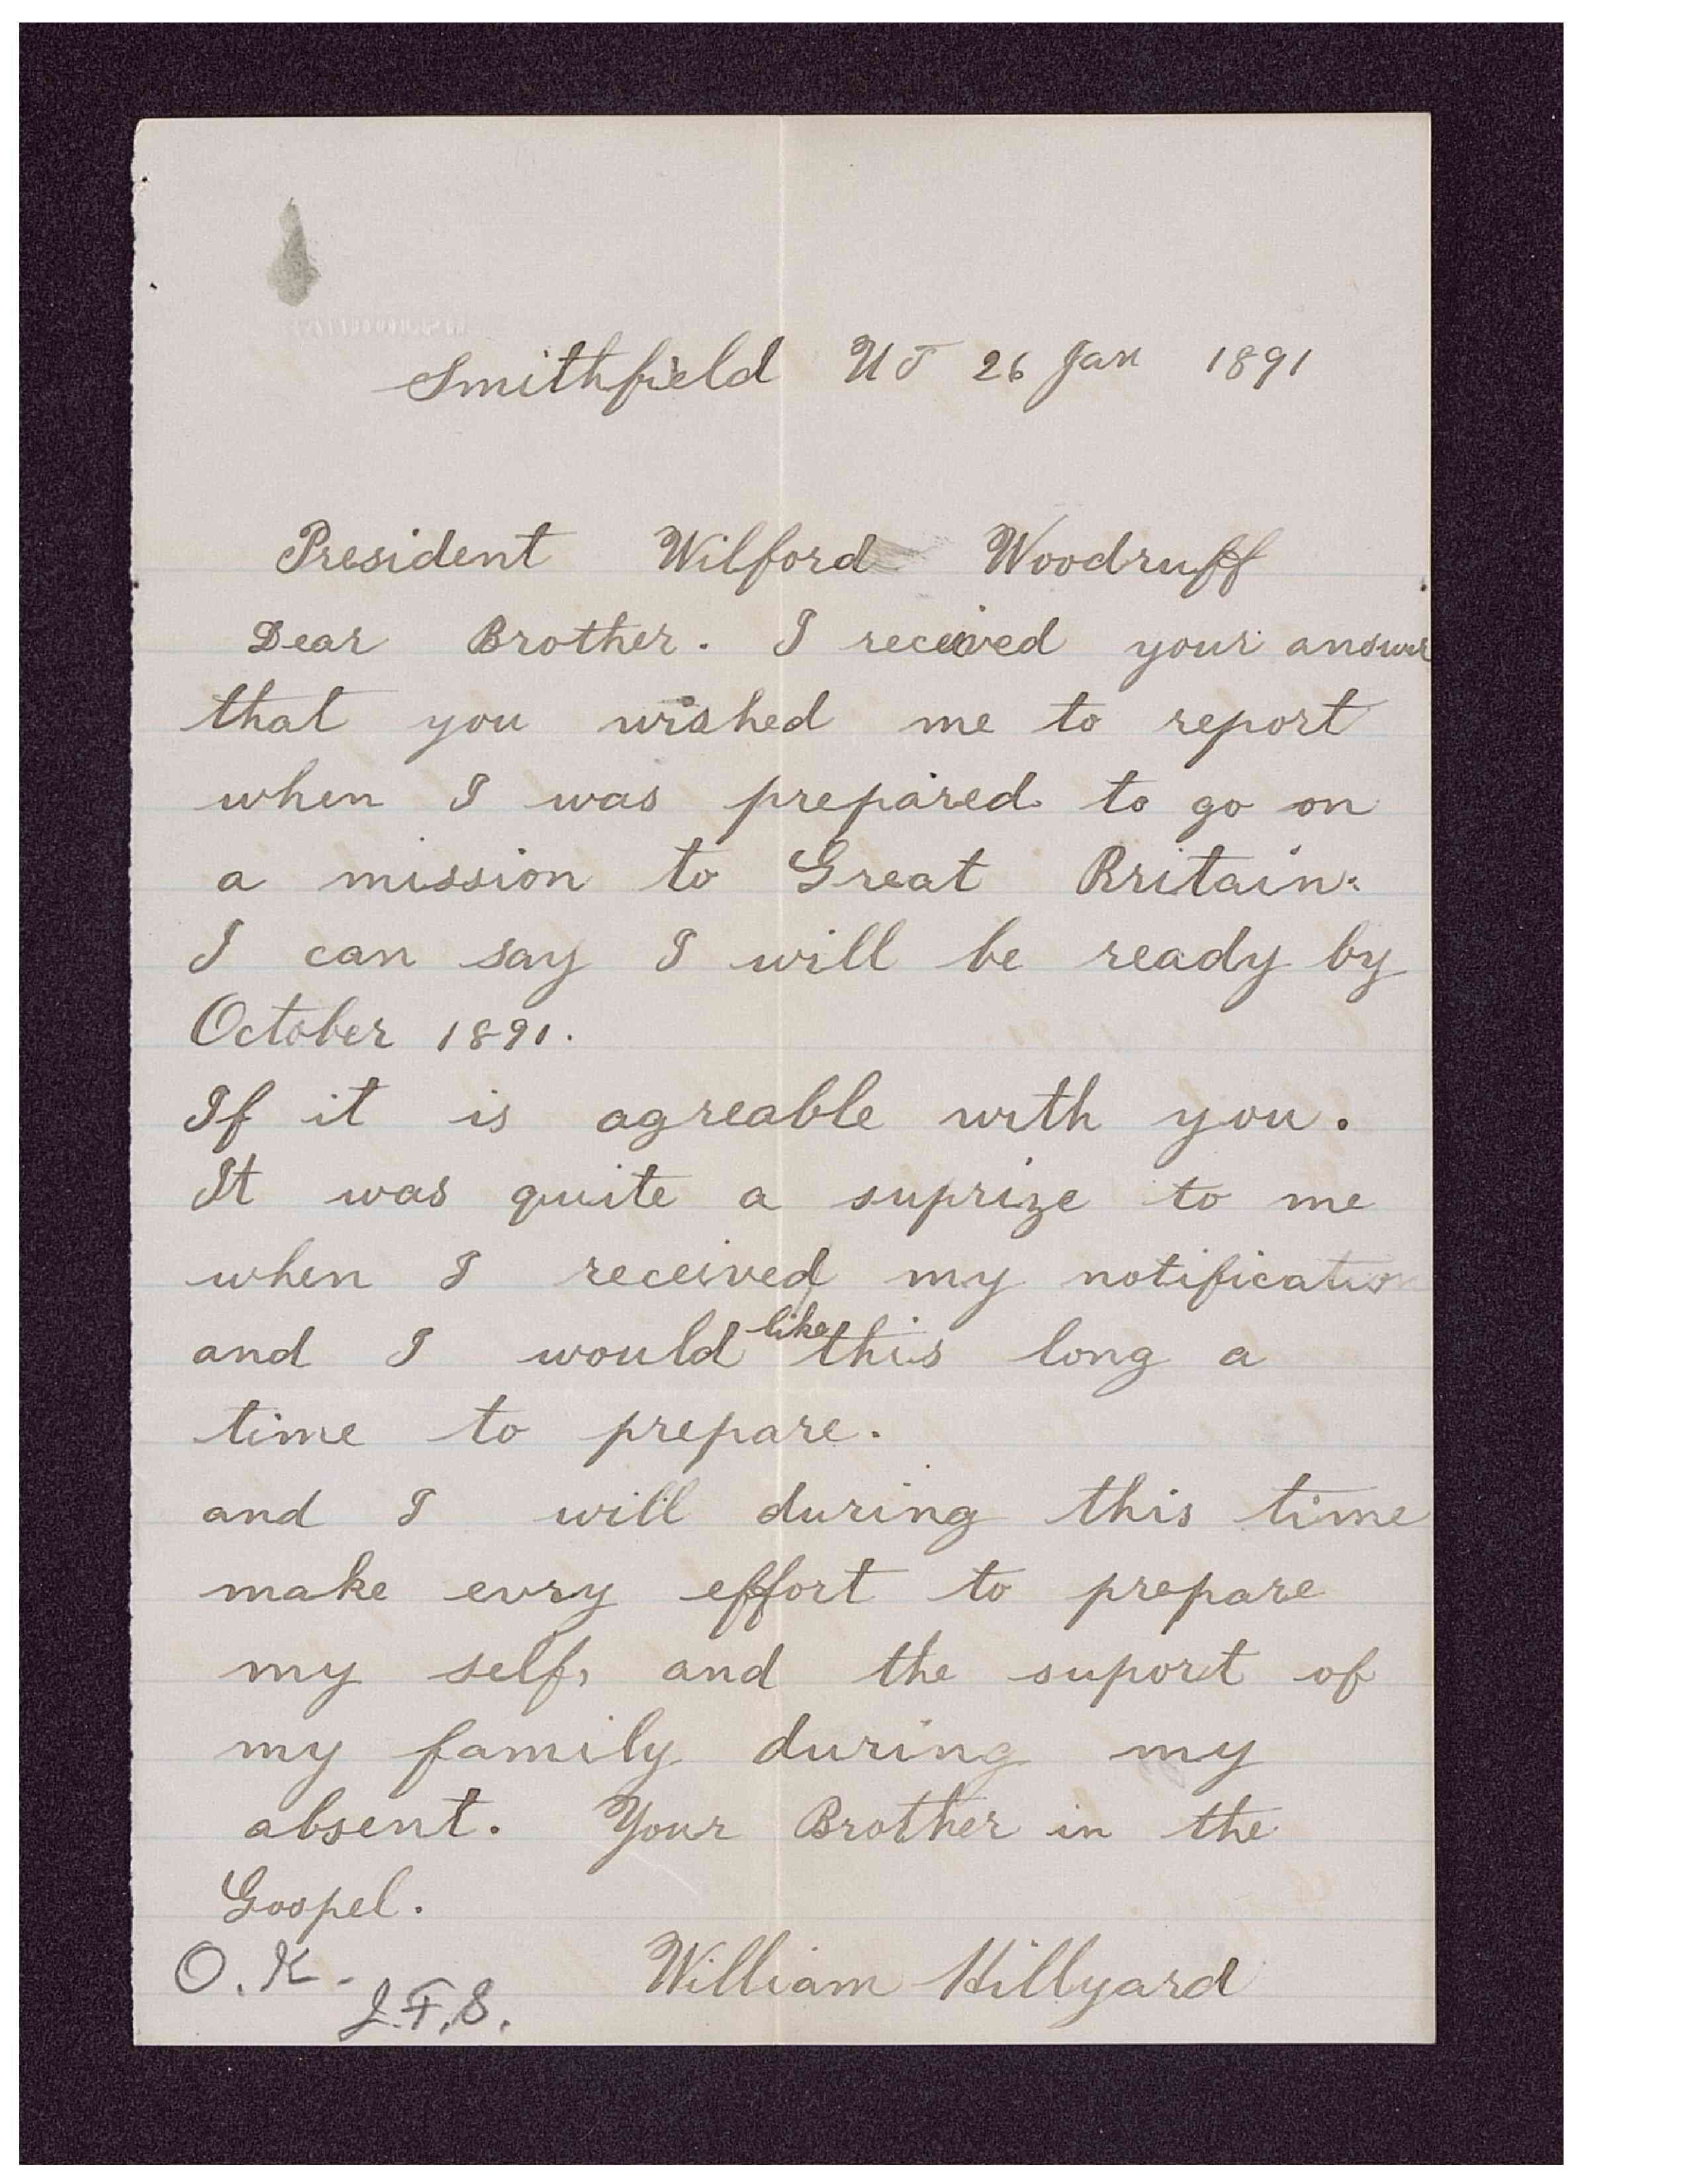 Smithfield UT 26 Jan 1891
President Wilford Woodruff
Dear Brother. I received your answer
that you wished me to report
when I was prepared to go on
a mission to Great Britain.
I can say I will be ready by
October 1891.
If it is agreable with you.
It was quite a suprize to me
when I received my notification
and I would like this long a
time to prepare.
and I will during this time
make evry effort to prepare
my self, and the suport of
my family during my
absent. Your Brother in the
Gospel.
William Hillyard
O.K.
J.F.S.